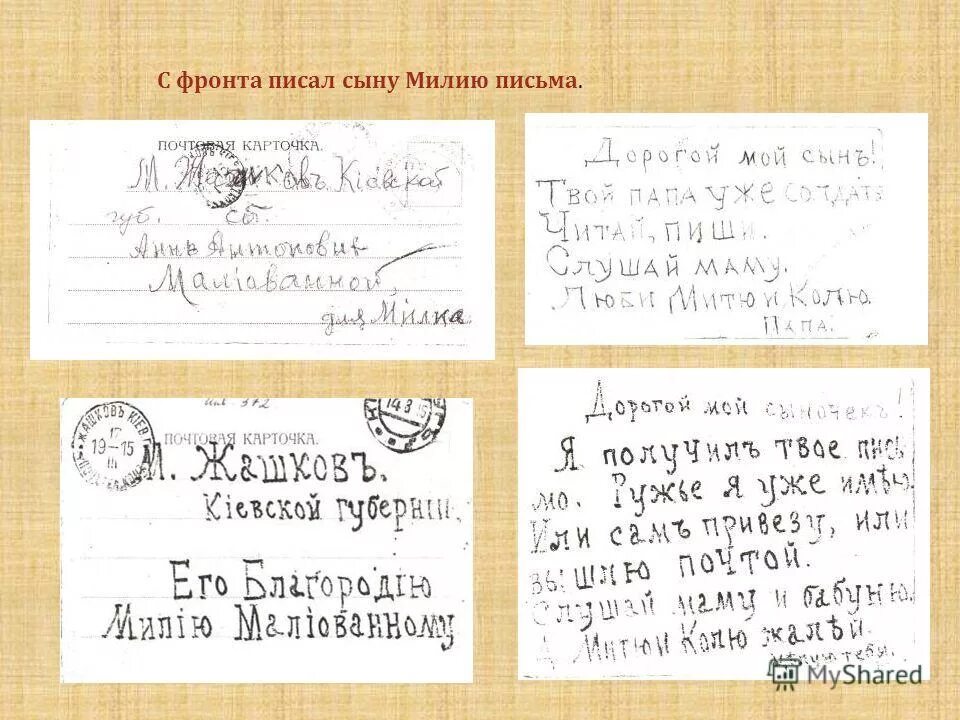 С фронта писал сыну Милию письма.
ПОЧТОВАЯ КАРТОЧКА.
М. Жашковъ Кіевской
губ.
Анне Антоновне
Маліованной,
для Милка
Дорогой мой сынъ!
Твой папа уже солдатъ
Читай, пиши.
Слушай маму.
Люби Митю и Колю.
Папа.
ЖАШКОВЪ КІЕВ
19-15
III
14 3 15
ПОЧТОВАЯ КАРТОЧКА.
М. Жашковъ.
Кіевской губерніи.
Его Благородію
Милію Маліованному
Дорогой мой сыночекъ!
Я получилъ твое пись
мо. Ружье я уже имѣю.
Или самъ привезу, или
вышлю почтой.
Слушай маму и бабуню.
А Митю и Колю жалѣй.
Цѣлую тебя.
MyShared